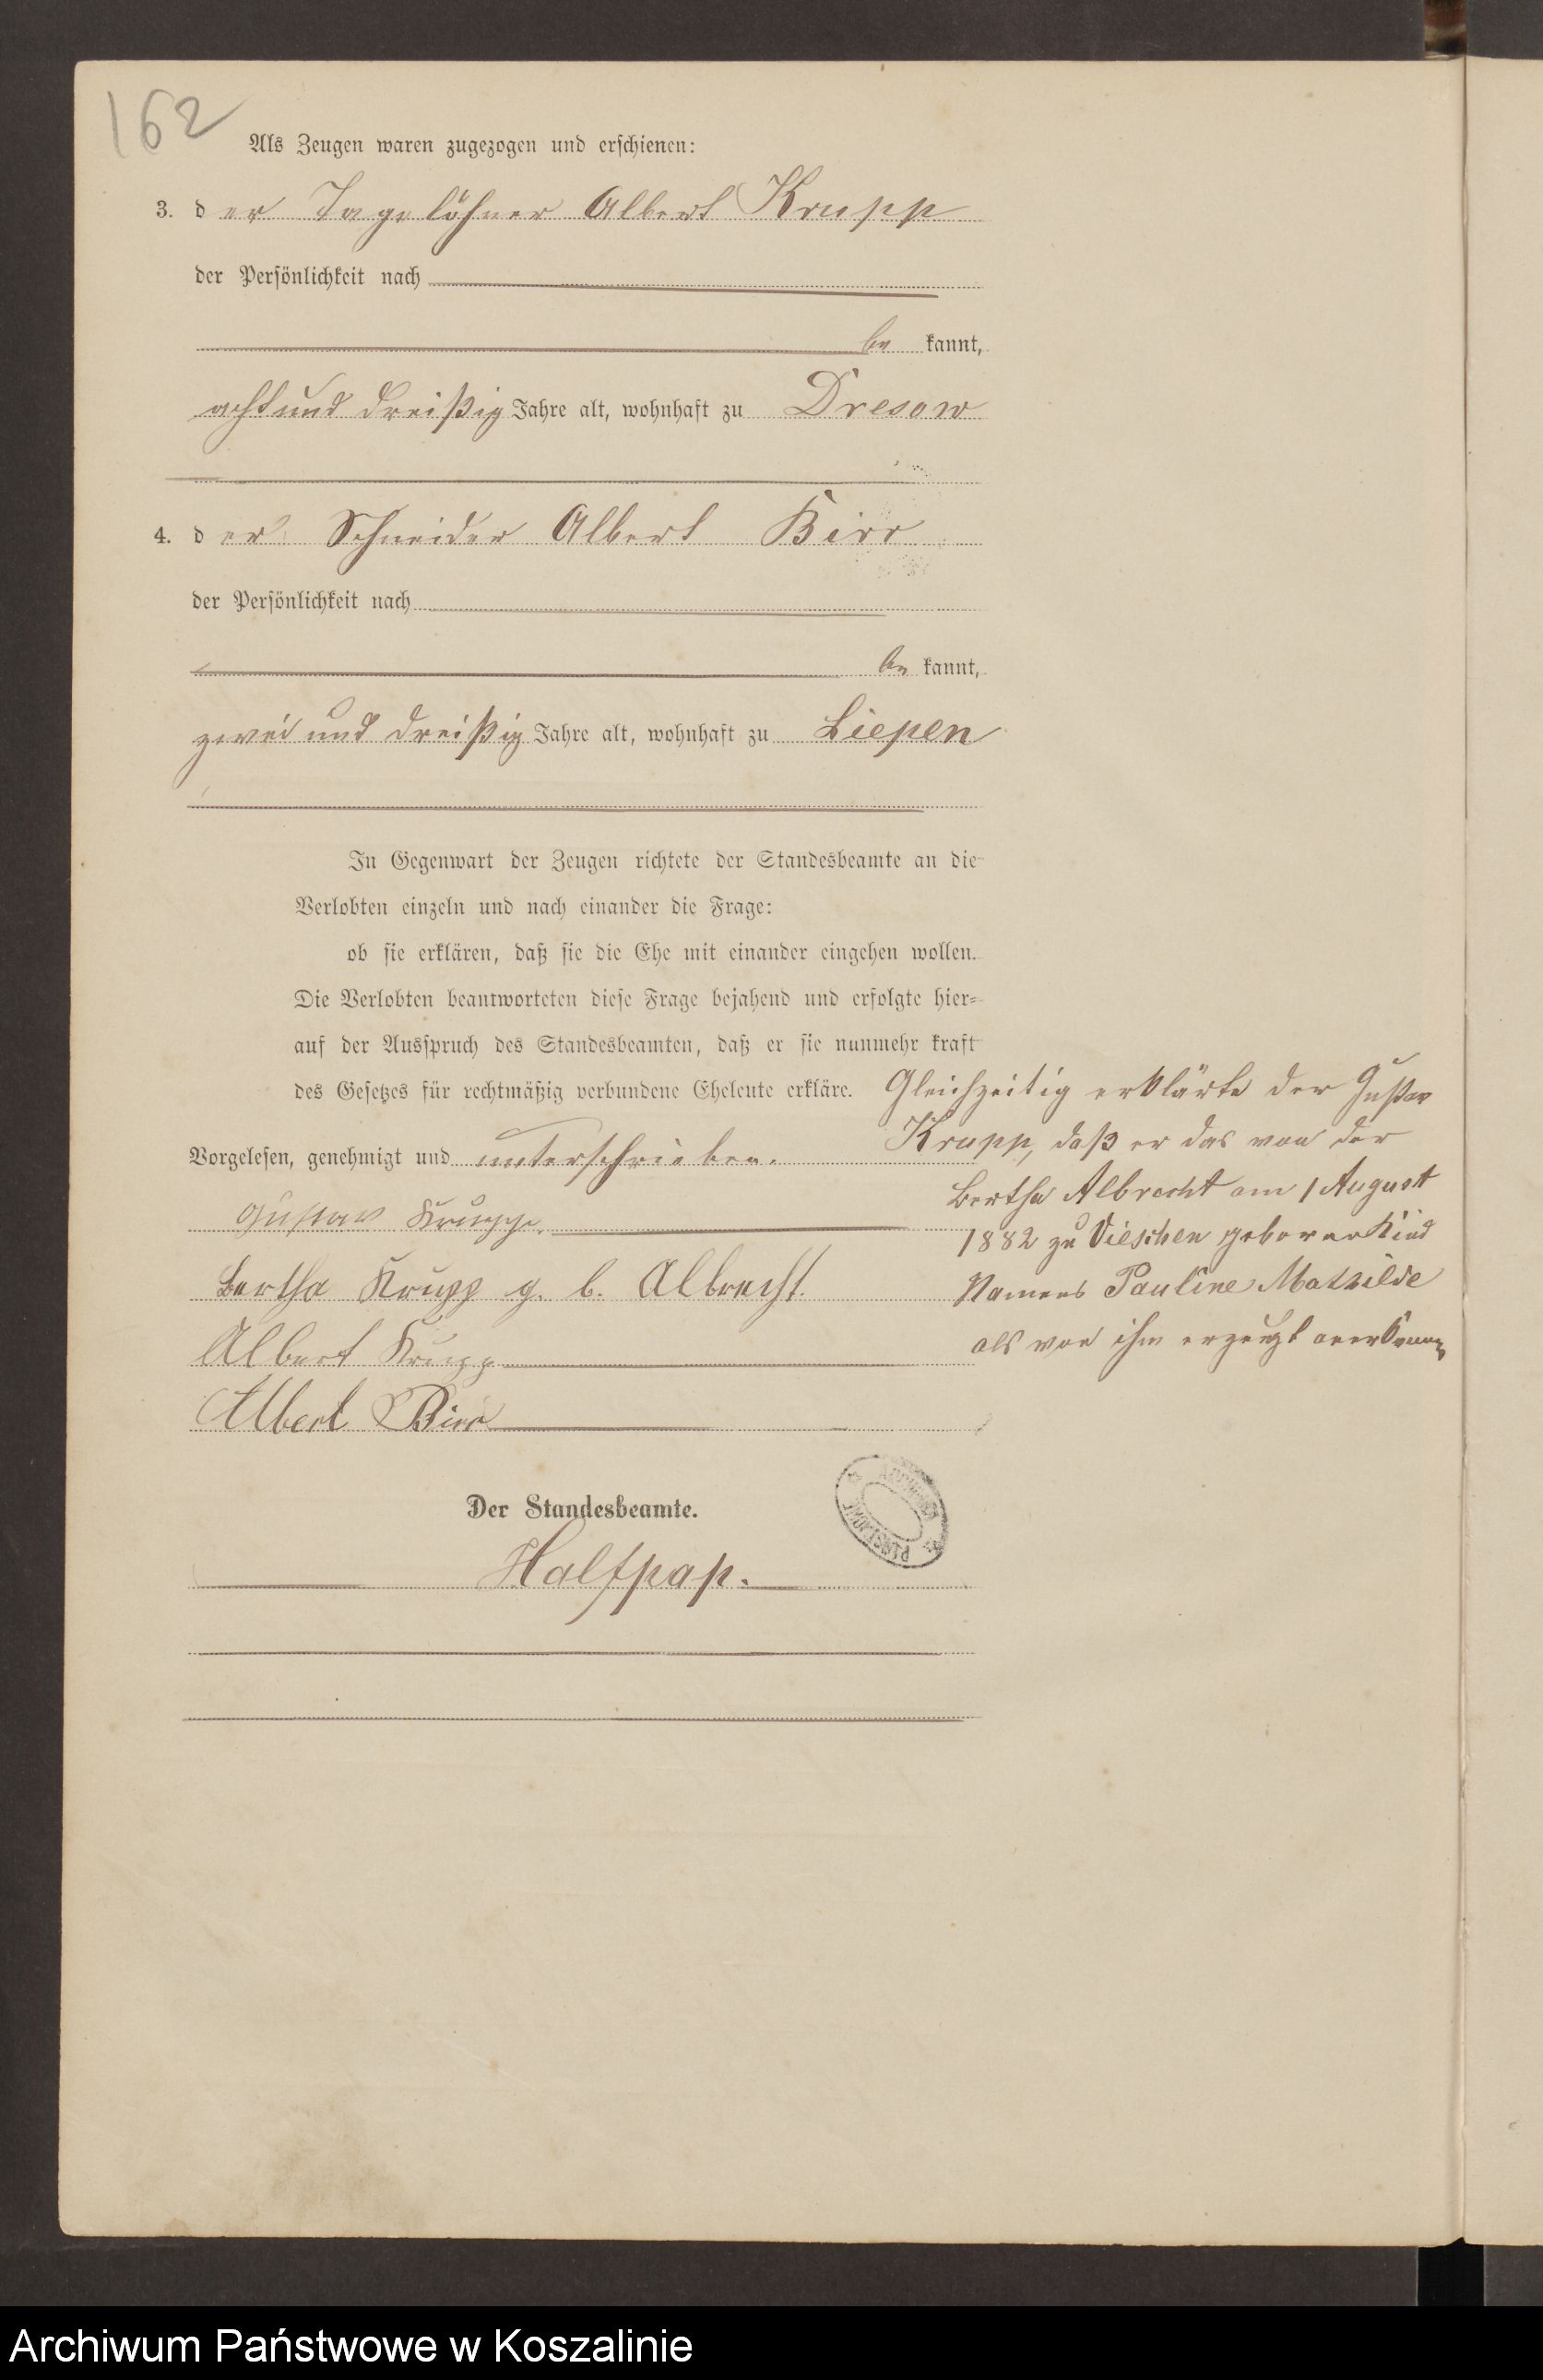 162
Als Zeugen waren zugezogen und erschienen:
3. der Tagelöhner Albert Krupp
der Persönlichkeit nach
be kannt,
achtund dreißig Jahre alt, wohnhaft zu Dresow
4. der Schneider Albert Birr
der Persönlichkeit nach
be kannt,
zwei und dreißig Jahre alt, wohnhaft zu Liepen
In Gegenwart der Zeugen richtete der Standesbeamte an die
Verlobten einzeln und nach einander die Frage:
ob sie erklären, daß sie die Ehe mit einander eingehen wollen.
Die Verlobten beantworteten diese Frage bejahend und erfolgte hier-
auf der Ausspruch des Standesbeamten, daß er sie nunmehr kraft
des Gesetzes für rechtmäßig verbundene Eheleute erkläre.
Gleichzeitig erklärte der Gustav
Krupp, daß er das von der
Bertha Albrecht am 1 August
1882 zu Vieschen geborene Kind
Namens Pauline Mathilde
als von ihm erzeugt anerkenne
Vorgelesen, genehmigt und unterschrieben.
Gustav Krupp.
Bertha Krupp g. b. Albrecht.
Albert Krupp
Albert Birr
Der Standesbeamte.
Halfpap.
Archiwum Państwowe w Koszalinie